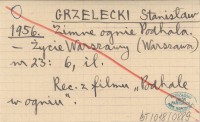 GRZELECKI Stanisław
1956. Zimne ognie Podhala.
– Życie Warszawy (Warszawa)
nr 23: 6, il.
Rec. z filmu "Podhale
w ogniu".
BT1048/0889